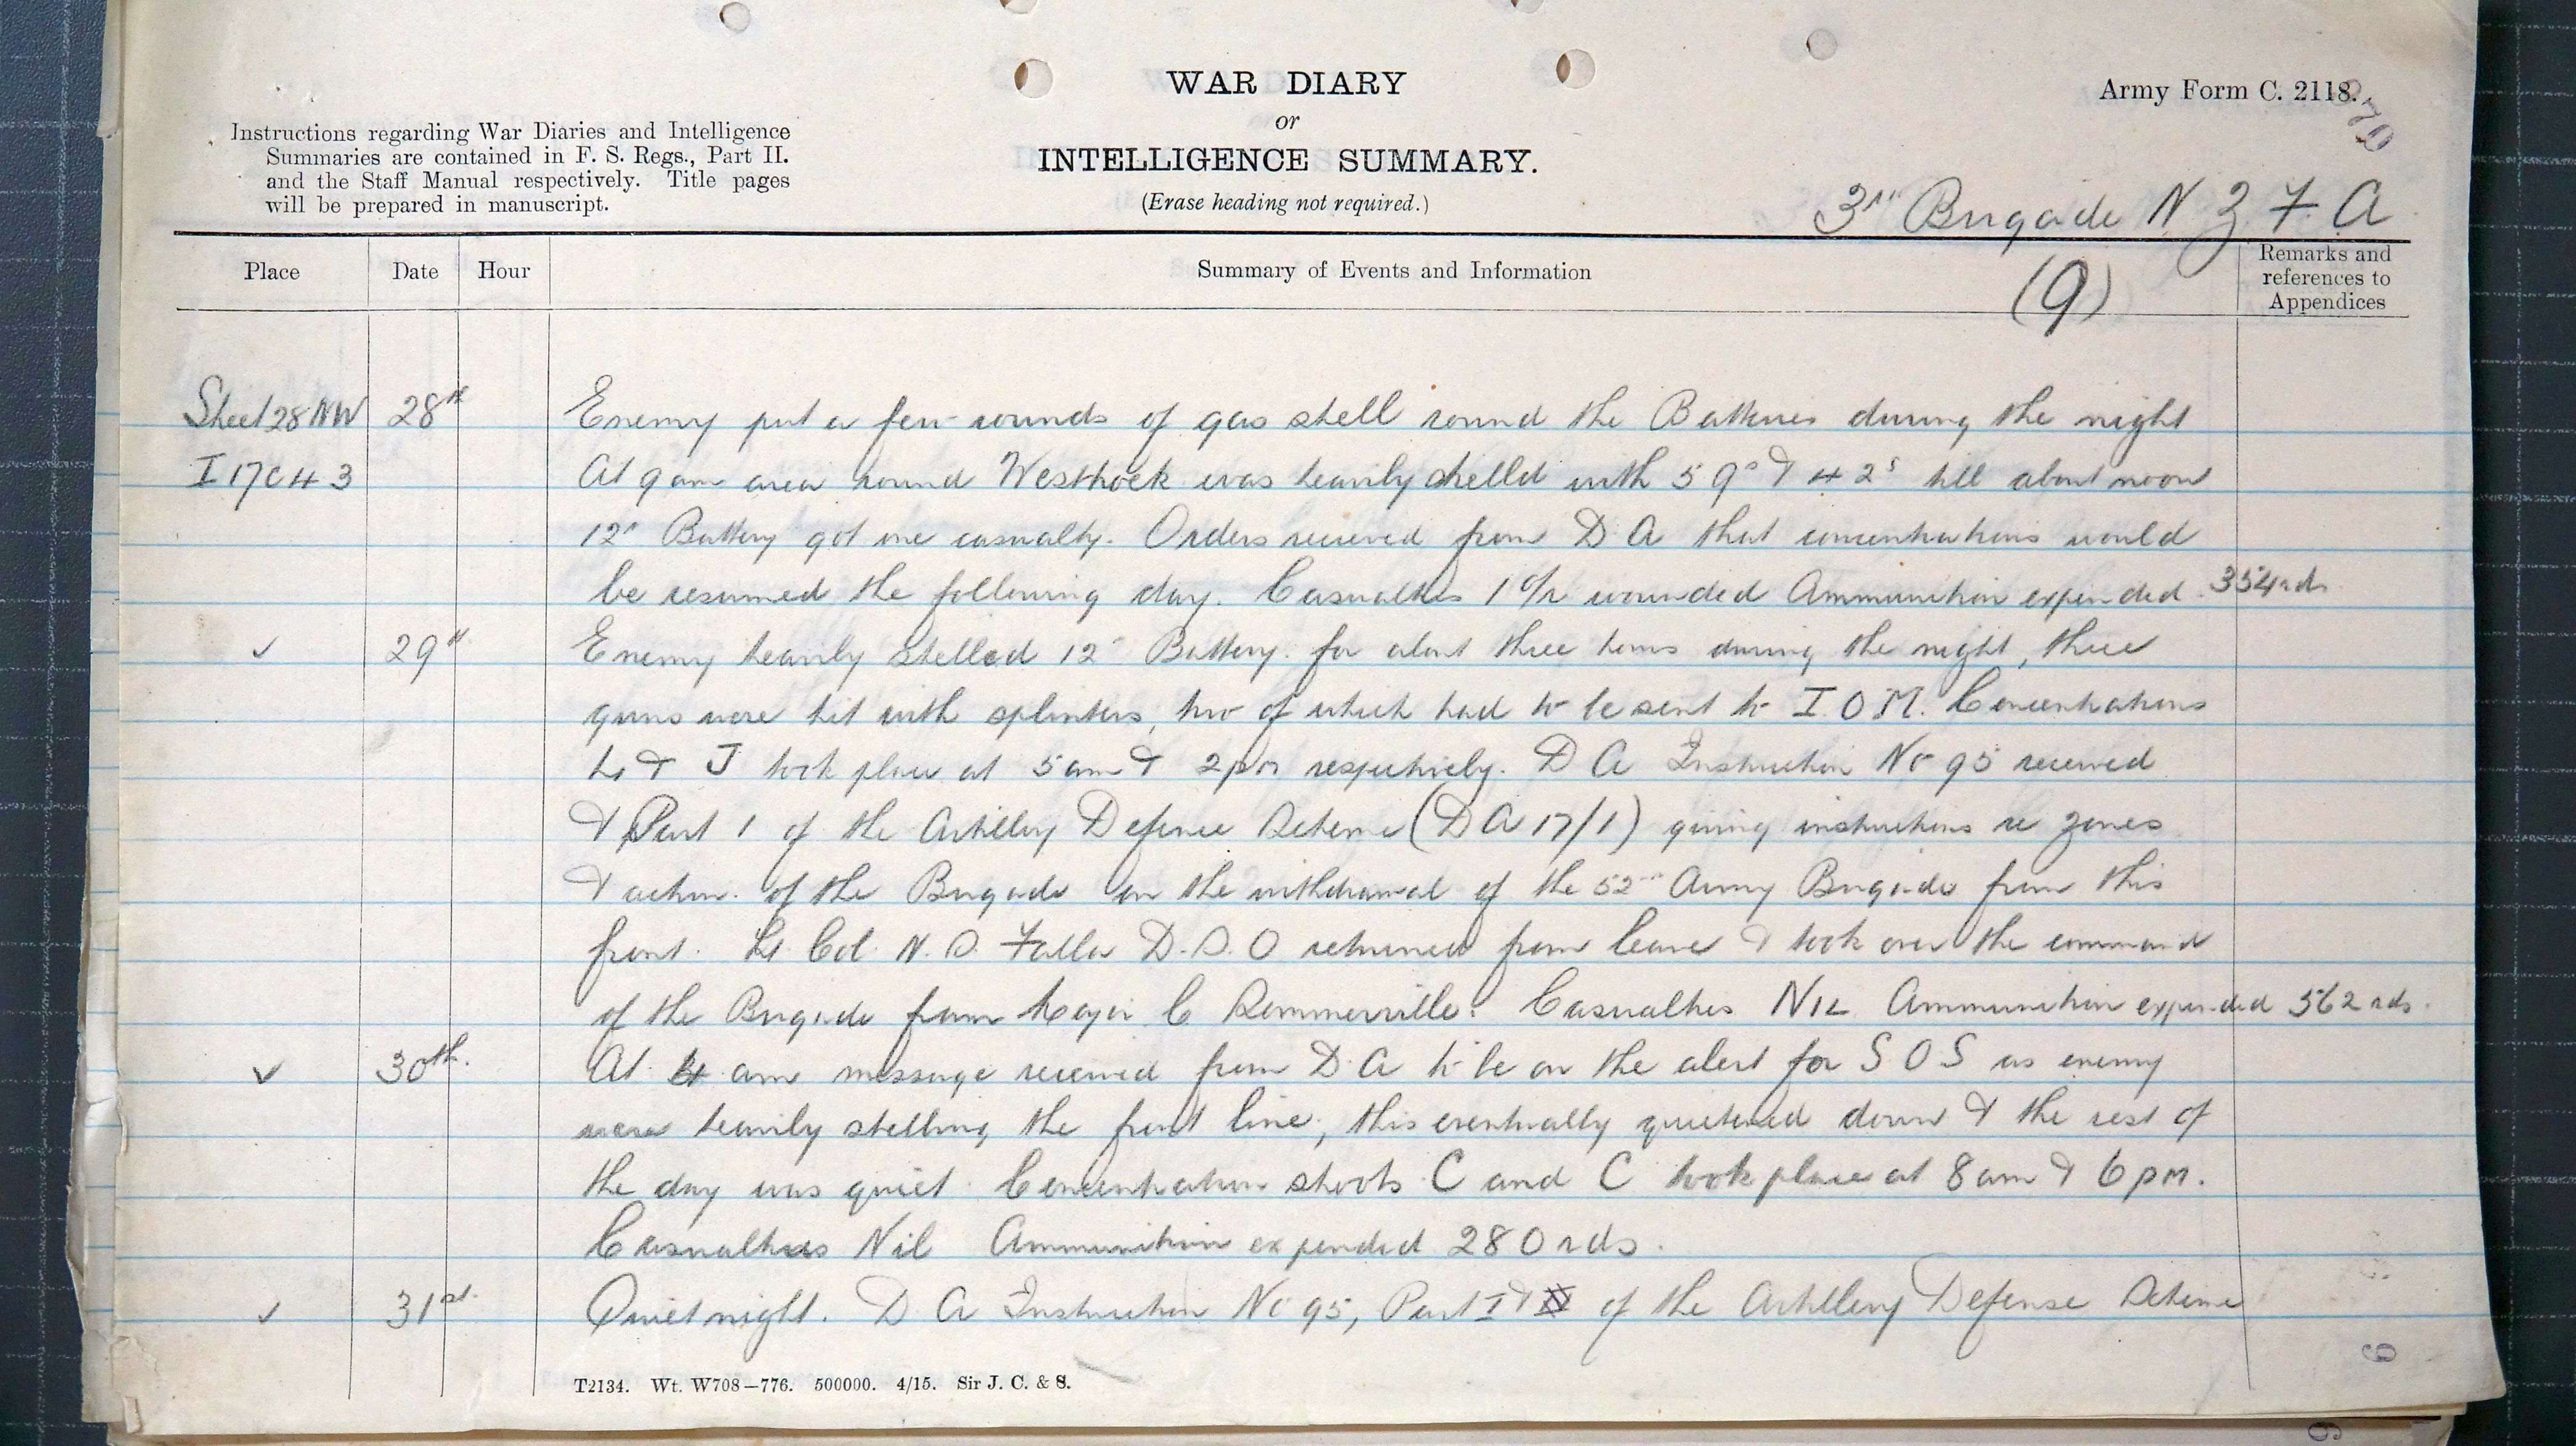 WAR DIARY
or
INTELLIGENCE SUMMARY.
(Erase heading not required.)
Army Form C. 2118.
Instructions regarding War Diaries and Intelligence
Summaries are contained in F. S. Regs., Part II.
and the Staff Manual respectively. Title pages
will be prepared in manuscript.
3rd Brigade N Z F A
(9)
Place
Date
Hour
Summary of Events and Information
Remarks and
references to
Appendices
Sheet 28 NW 28th Enemy put a few rounds of gas shell round the Batteries during the night
I 17 C 4 3 At 9 am area round Westhoek was heavily shelled with 5 9s & 4 2s till about noon
12th Battery got one casualty. Orders received from D A that concentrations would
be resumed the following day. Casualties 1 O/R wounded Ammunition expended 354 rds
✓ 29th Enemy heavily shelled 12th Battery for about three hours during the night, three
guns were hit with splinters, two of which had to be sent to I.O.M. Concentrations
& J took place at 5 am & 2 pm respectively. D A Instruction No 95 received
& Part 1 of the Artillery Defence Scheme (D A 17/1) giving instructions re zones
& action of the Brigade on the withdrawal of the 52nd Army Brigade from this
front. Lt Col. N. S. Falla D.S.O returned from leave & took over the command
of the Brigade from Major C Sommerville. Casualties NIL Ammunition expended 562 rds.
✓ 30th. At 4 am message received from D A to be on the alert for S O S as enemy
were heavily shelling the front line; this eventually quietened down & the rest of
the day was quiet. Concentration shoots C and C took place at 8 am & 6 pm.
Casualties Nil Ammunition expended 280 rds.
✓ 31st. Quiet night. D A Instruction No 95, Part I & of the Artillery Defense Scheme
T2134. Wt. W708—776. 500000. 4/15. Sir J. C. & S.